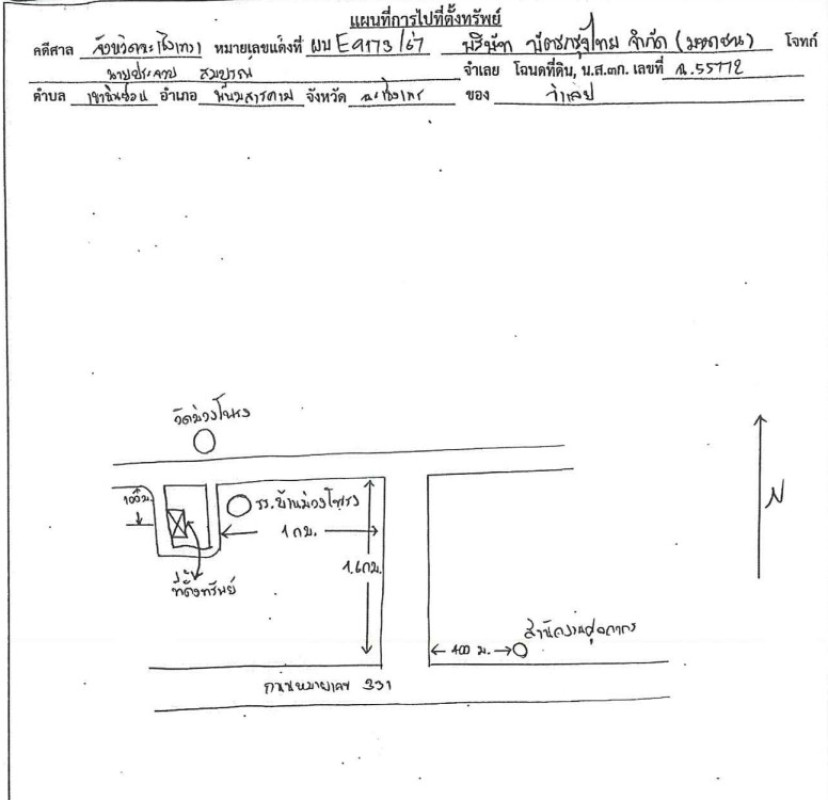 แผนที่การไปที่ตั้งทรัพย์
คดีศาล จังหวัดฉะเชิงเทรา หมายเลขแดงที่ ผบ E9173/67 บริษัท บัตรกรุงไทย จำกัด (มหาชน) โจทก์
นายประกอบ สมบูรณ์ จำเลย โฉนดที่ดิน, น.ส.๓ก. เลขที่ ฉ.55772
ตำบล เขาหินซ้อน อำเภอ พนมสารคาม จังหวัด ฉะเชิงเทรา ของ จำเลย
วัดม่วงโพรง
100ม.
รร.บ้านม่วงโพรง
1 กม.
1.6กม.
N
ที่ตั้งทรัพย์
400 ม.
ถนนหมายเลข 331